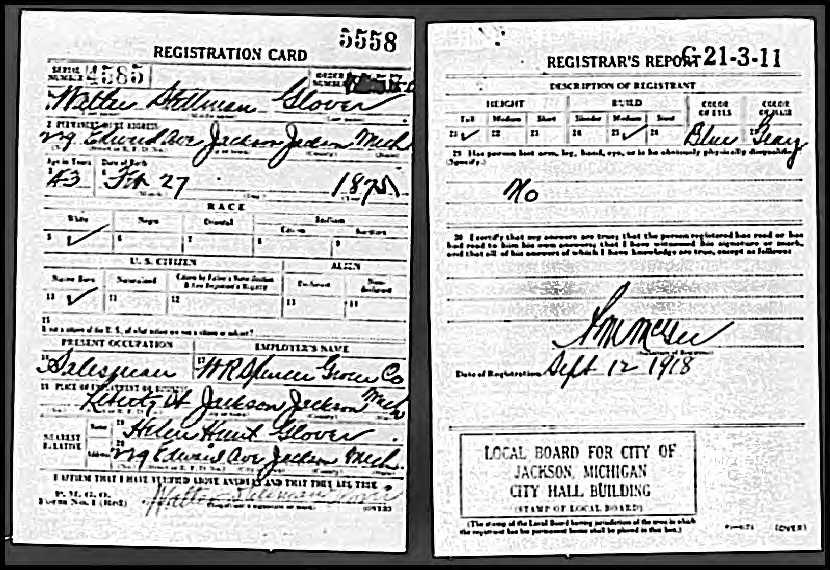 REGISTRATION CARD
5558
SERIAL NUMBER 4585
ORDER NUMBER
Walter Stillman Glover
2 PERMANENT HOME ADDRESS
Edward Ave Jackson Jackson Mich
Age in Years
Date of Birth
43 Feb 27 1875
RACE
White Negro Oriental Indian
Citizen
5 ✓ 6 7 8 9
U. S. CITIZEN ALIEN
Native Born Naturalized Citizen by Father's Naturalization Before Registrant's Majority Declarant Non-declarant
10 ✓ 11 12 13 14
15
If not a citizen of the U. S., of what nation are you a citizen or subject?
PRESENT OCCUPATION EMPLOYER'S NAME
16 Salesman 17 W R Spencer Groc Co
18 PLACE OF EMPLOYMENT OR BUSINESS
Liberty St Jackson Jackson Mich
NEAREST RELATIVE
Name 19 Helen Hunt Glover
Address 20 Edward Ave Jackson Mich
I AFFIRM THAT I HAVE VERIFIED ABOVE ANSWERS AND THAT THEY ARE TRUE
P. M. G. O.
Form No. 1 (Red)
Walter Stillman Glover
(OVER)
REGISTRAR'S REPORT
21-3-11
DESCRIPTION OF REGISTRANT
HEIGHT BUILD COLOR OF EYES COLOR OF HAIR
Tall Medium Short Slender Medium Stout
21 ✓ 22 23 24 25 ✓ 26 Blue Gray
29 Has person lost arm, leg, hand, eye, or is he obviously physically disqualified?
(Specify.)
No
30 I certify that my answers are true; that the person registered has read or has
had read to him his own answers; that I have witnessed his signature or mark,
and that all of his answers of which I have knowledge are true, except as follows:
(Signature of Registrar)
Date of Registration Sept 12 1918
LOCAL BOARD FOR CITY OF
JACKSON, MICHIGAN
CITY HALL BUILDING
(STAMP OF LOCAL BOARD)
(The stamp of the Local Board having jurisdiction of the area in which
the registrant has his permanent home shall be placed in this box.)
(OVER)